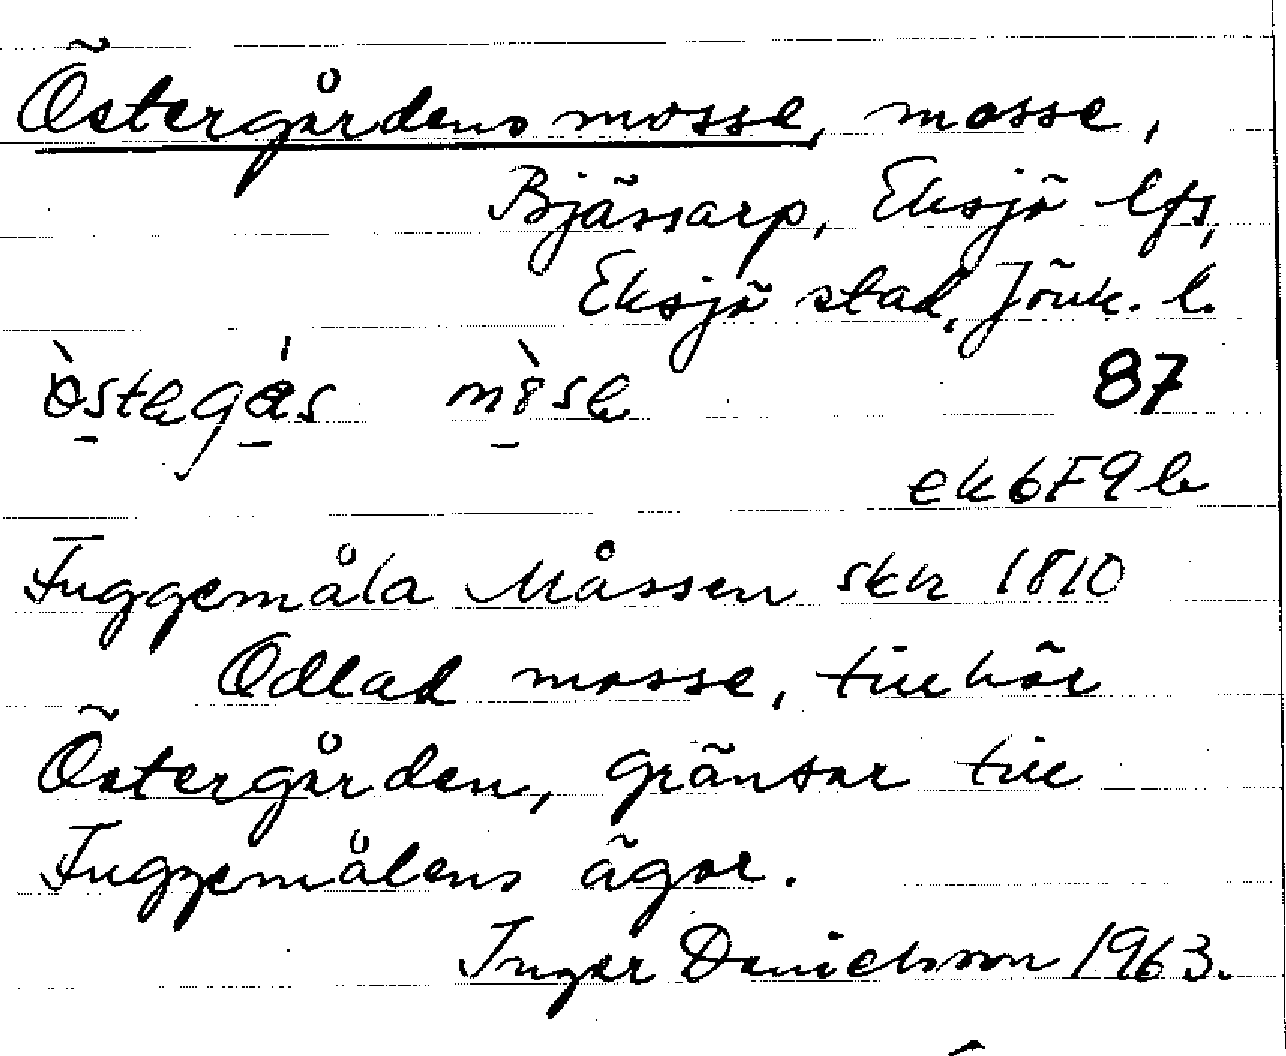 Östergårdens mosse, mosse,
Bjässarp, Eksjö lfs,
Eksjö stad, Jönk. l.
87
ek6F9b
Fuggemåla Måssen skh 1810
Odlad mosse, tillhör
Östergården, gränsar till
Fuggemålens ägor.
Ingar Danielsson 1963.